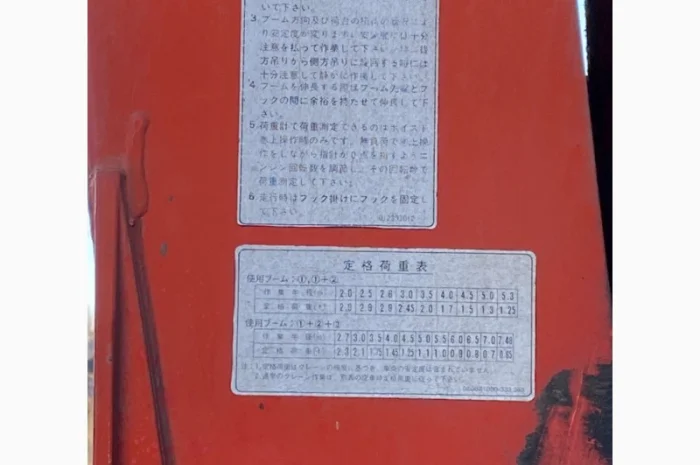 いて下さい。
3.ブーム方向及び
り安定度が変りますから には十分
注意を払って作業して下さい。
方吊りから側方吊りに旋回する時には
十分注意して静かに作業して下さい。
4.ブームを伸長する際はブーム先端とフ
ックの間に余裕を持たせて伸長して下
さい。
5.荷重計で荷重測定できるのはホイスト
巻上操作時のみです。無負荷で巻上操
作をしながら指針が0点を指すように
エンジン回転数を調節し、その回転数で
荷重測定して下さい。
6.走行時はフック掛けにフックを固定し
て下さい。
定格荷重表
使用ブーム:①,①+②
作業半径(m) 2.0 2.5 2.8 3.0 3.5 4.0 4.5 5.0 5.3
定格荷重(t) 2.9 2.9 2.45 2.0 1.7 1.5 1.3 1.25
使用ブーム:①+②+③
作業半径(m) 2.7 3.0 3.5 4.0 4.5 5.0 5.5 6.0 6.5 7.0 7.48
定格荷重(t) 2.3 2.1 1.75 1.45 1.25 1.1 1.0 0.9 0.8 0.7 0.65
注.1.定格荷重はクレーンの強度に基づき、
2.通常のクレーン作業は、 に従って下さい。